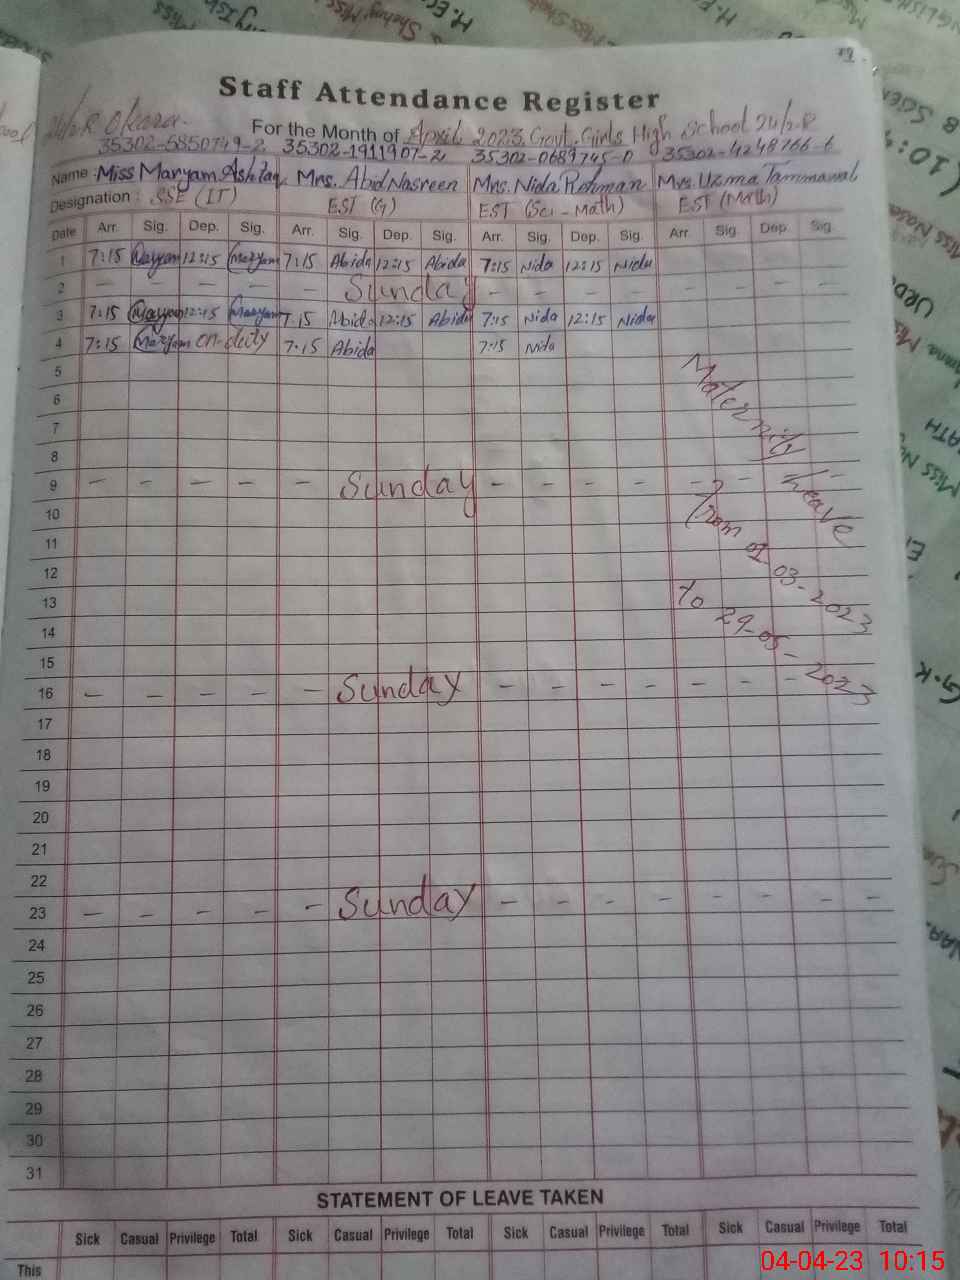 79
Staff Attendance Register
For the Month of April 2023. Govt. Girls High School 24/2-R
24/2-R Okara.
35302-5850749-2 35302-1911907-2 35302-0689745-0 35302-4248766-6
Name : Miss Maryam Ashfaq Mrs. Abid Nasreen Mrs. Nida Rehman Mrs. Uzma
Designation : SSE (IT) EST (G) EST (Sci-Math) EST (Math)
Date Arr. Sig. Dep. Sig. Arr. Sig. Dep. Sig. Arr. Sig. Dep. Sig. Arr. Sig. Dep. Sig.
1 7:15 Maryam 12:15 Maryam 7:15 Abida 12:15 Abida 7:15 Nida 12:15 Nida
2 - - - - - Sunday - - - -
3 7:15 Maryam 12:15 Maryam 7:15 Abida 12:15 Abida 7:15 Nida 12:15 Nida
4 7:15 Maryam on-duty 7:15 Abida 7:15 Nida
5
6
7
8
9 - - - - - Sunday - - - - - - - -
10
11
12
13
14
15
16 - - - - - Sunday - - - - - - -
17
18
19
20
21
22
23 - - - - - Sunday - - - - - - - -
24
25
26
27
28
29
30
31
Maternity Leave
From 01-03-2023
to 29-05-2023
STATEMENT OF LEAVE TAKEN
Sick Casual Privilege Total Sick Casual Privilege Total Sick Casual Privilege Total Sick Casual Privilege Total
This
04-04-23 10:15